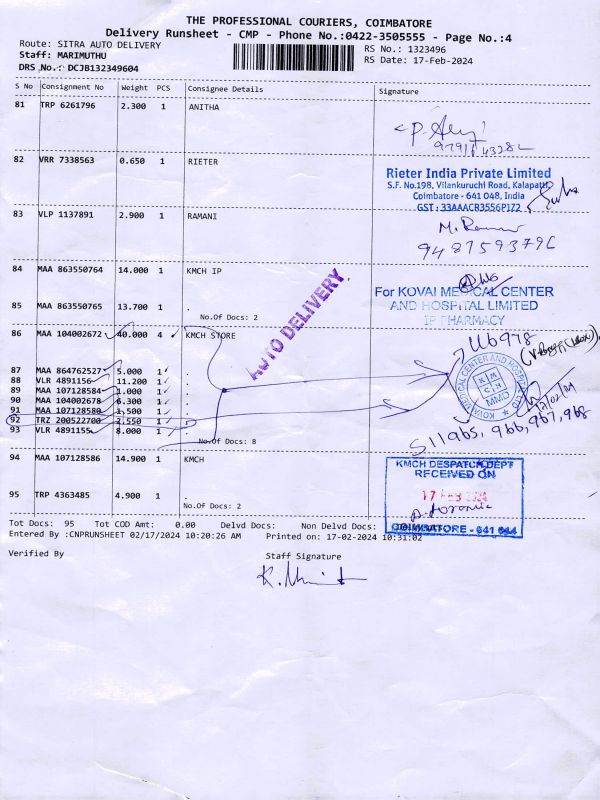 THE PROFESSIONAL COURIERS, COIMBATORE
Delivery Runsheet - CMP - Phone No.:0422-3505555 - Page No.:4
Route: SITRA AUTO DELIVERY RS No.: 1323496
Staff: MARIMUTHU RS Date: 17-Feb-2024
DRS No.: DCJB132349604
S No Consignment No Weight PCS Consignee Details Signature
81 TRP 6261796 2.300 1 ANITHA
82 VRR 7338563 0.650 1 RIETER
Rieter India Private Limited
S.F. No.198, Vilankuruchi Road, Kalapatti
Coimbatore - 641 048, India
GST : 33AAACR3556P1Z2
83 VLP 1137891 2.900 1 RAMANI
9487593796
84 MAA 863550764 14.000 1 KMCH IP
For KOVAI MEDICAL CENTER
AND HOSPITAL LIMITED
IP PHARMACY
85 MAA 863550765 13.700 1 .
No.Of Docs: 2
AUTO DELIVERY
86 MAA 104002672 40.000 4 KMCH STORE
87 MAA 864762527 5.000 1 .
88 VLR 4891156 11.200 1 .
89 MAA 107128584 1.000 1 .
90 MAA 104002678 6.300 1 .
91 MAA 107128580 1.500 1 .
92 TRZ 200522700 2.550 1 .
93 VLR 4891155 8.000 1 .
No.Of Docs: 8
KOVAI MEDICAL CENTER AND HOSPITAL
94 MAA 107128586 14.900 1 KMCH
KMCH DESPATCH DEPT
RECEIVED ON
17 FEB 2024
COIMBATORE - 641 044
95 TRP 4363485 4.900 1 .
No.Of Docs: 2
Tot Docs: 95 Tot COD Amt: 0.00 Delvd Docs: Non Delvd Docs:
Entered By :CNPRUNSHEET 02/17/2024 10:20:26 AM Printed on: 17-02-2024 10:31:02
Verified By Staff Signature